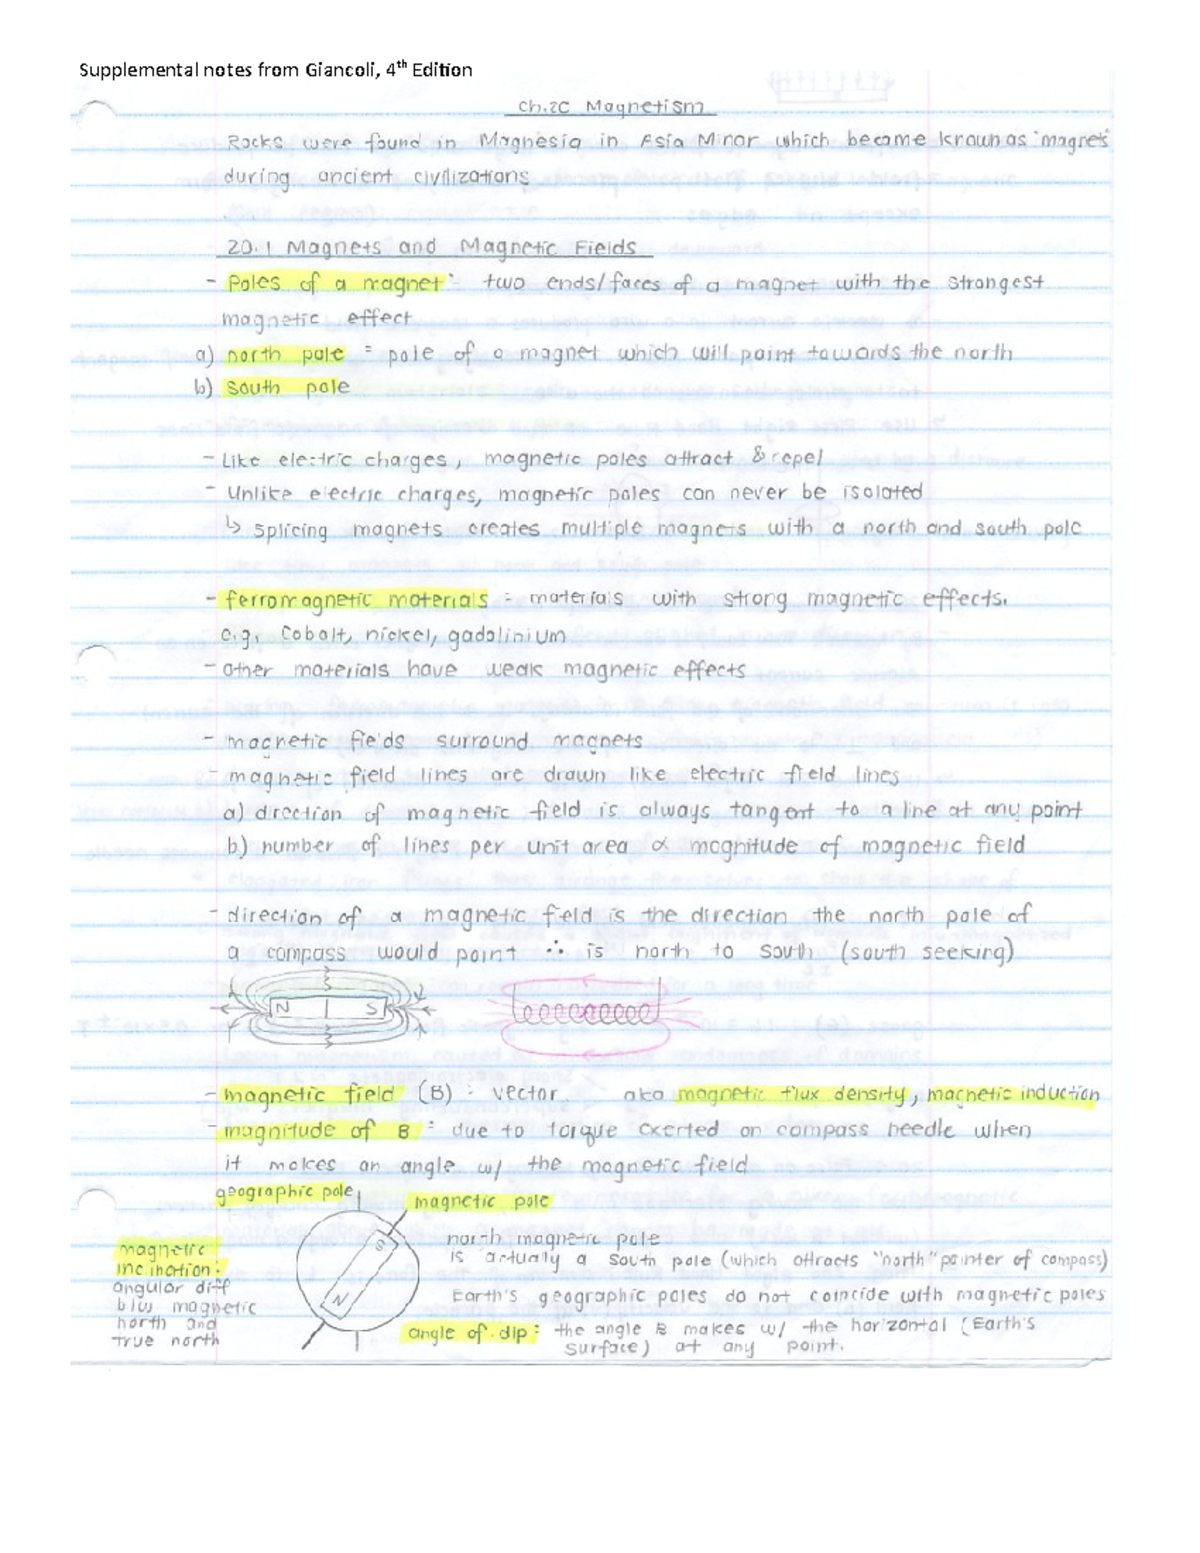 Supplemental notes from Giancoli, 4th Edition
Ch.20 Magnetism
Rocks were found in Magnesia in Asia Minor which became known as "magnets"
during ancient civilizations
20.1 Magnets and Magnetic Fields
- Poles of a magnet: two ends/faces of a magnet with the strongest
magnetic effect
a) north pole = pole of a magnet which will point towards the north
b) south pole
- Like electric charges, magnetic poles attract & repel
- Unlike electric charges, magnetic poles can never be isolated
↳ splicing magnets creates multiple magnets with a north and south pole
- ferromagnetic materials = materials with strong magnetic effects.
e.g. Cobalt, nickel, gadolinium
- other materials have weak magnetic effects
- magnetic fields surround magnets
- magnetic field lines are drawn like electric field lines
a) direction of magnetic field is always tangent to a line at any point
b) number of lines per unit area ∝ magnitude of magnetic field
- direction of a magnetic field is the direction the north pole of
a compass would point ∴ is north to south (south seeking)
N S
- magnetic field (B) : vector aka magnetic flux density, magnetic induction
- magnitude of B : due to torque exerted on compass needle when
it makes an angle w/ the magnetic field
geographic pole
magnetic pole
S
N
north magnetic pole
is actually a south pole (which attracts "north" pointer of compass)
Earth's geographic poles do not coincide with magnetic poles
magnetic
inclination:
angular diff
b/w magnetic
north and
true north
angle of dip: the angle B makes w/ the horizontal (Earth's
surface) at any point.